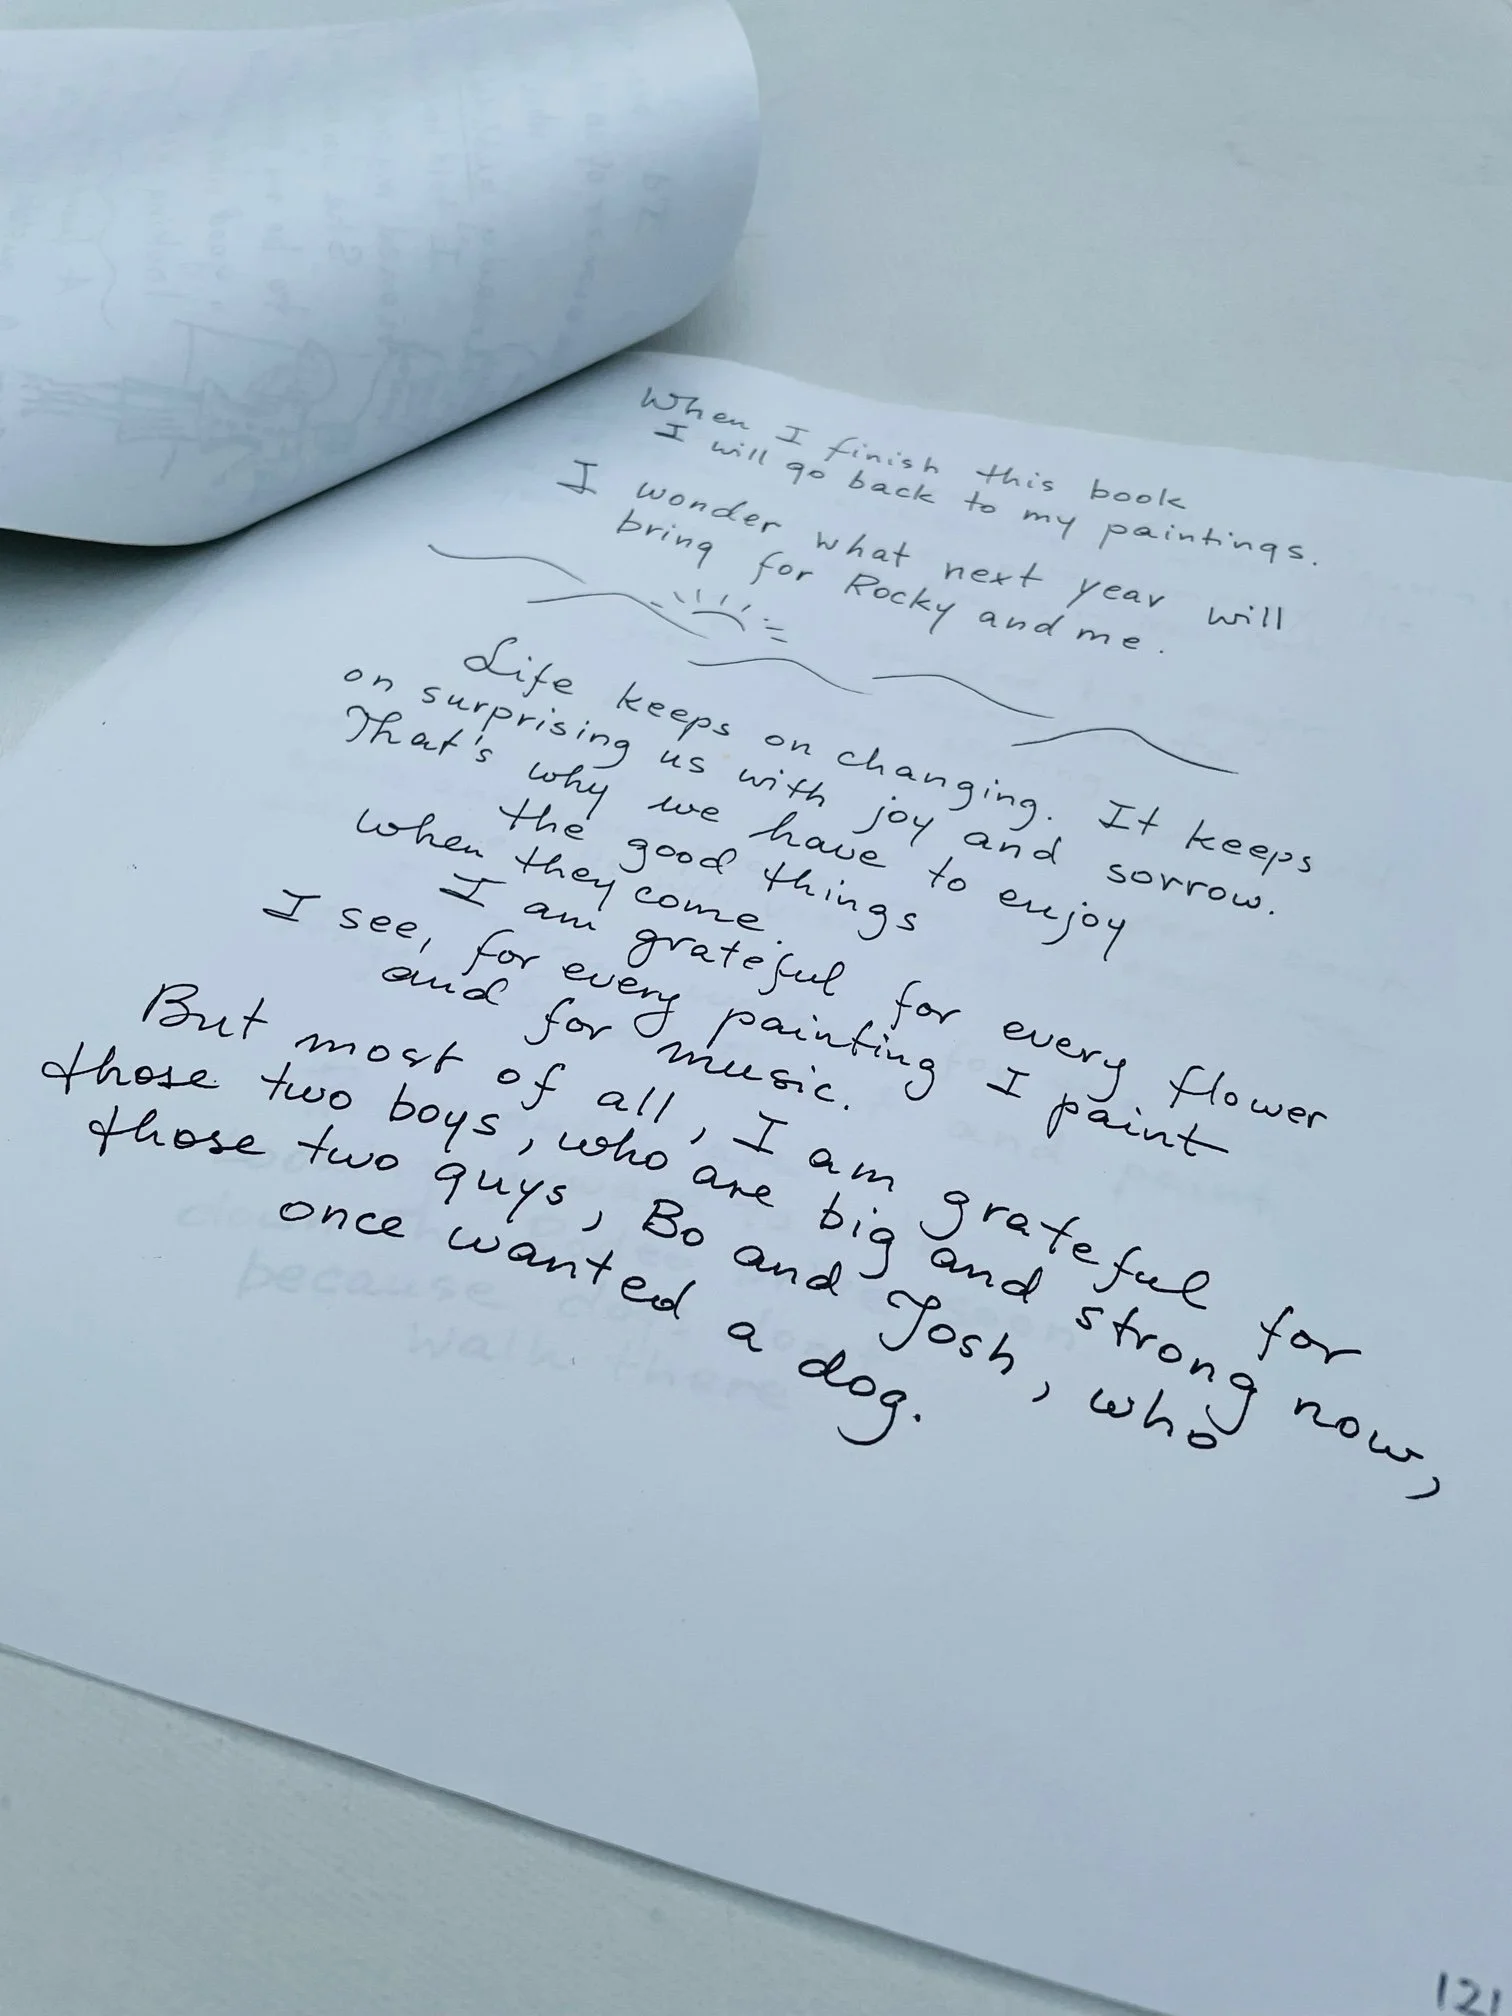 When I finish this book
I will go back to my paintings.
I wonder what next year will
bring for Rocky and me.
Life keeps on changing. It keeps
on surprising us with joy and sorrow.
That's why we have to enjoy
the good things
when they come.
I am grateful for every flower
I see, for every painting I paint
and for music.
But most of all, I am grateful for
those two boys, who are big and strong now,
those two guys, Bo and Josh, who
once wanted a dog.
because
walk there
121